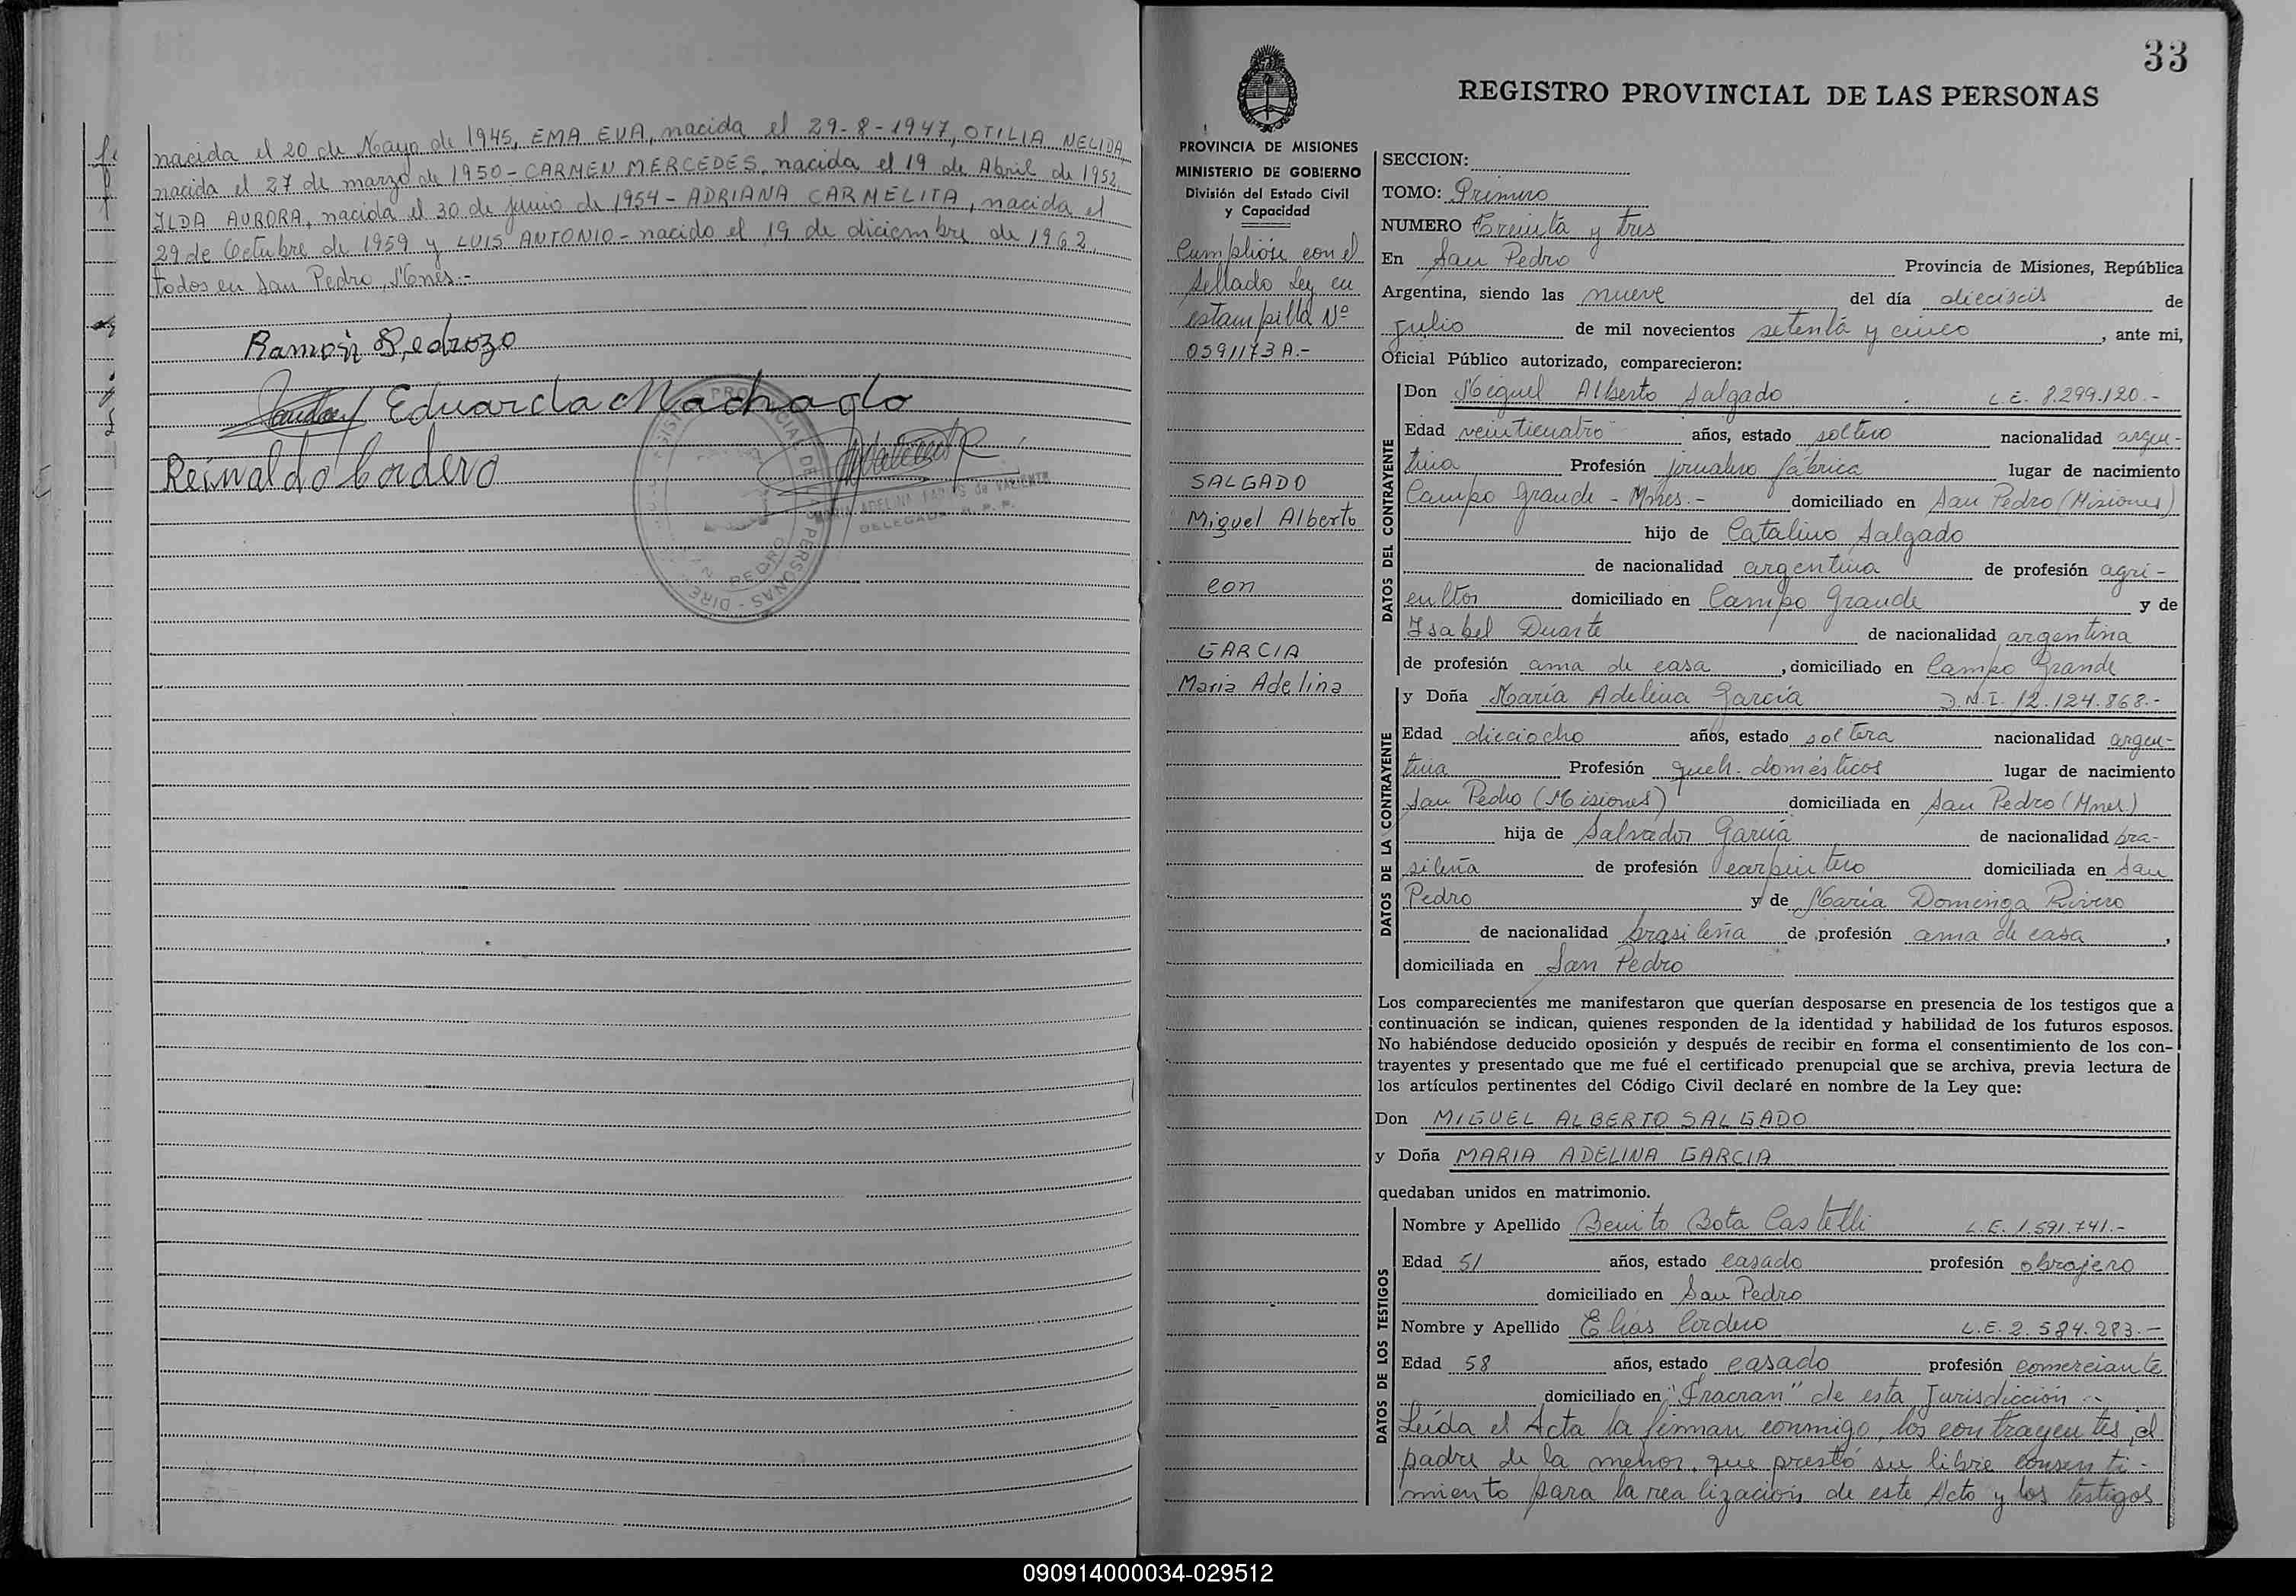 nacida el 20 de Mayo de 1945, EMA EVA, nacida el 29-8-1947, OTILIA NELIDA,
nacida el 27 de marzo de 1950 - CARMEN MERCEDES, nacida el 19 de Abril de 1952,
ILDA AURORA, nacida el 30 de junio de 1954 - ADRIANA CARMELITA, nacida el
29 de Octubre de 1959 y LUIS ANTONIO - nacido el 19 de diciembre de 1962,
todos en San Pedro, Mnes.-
Ramón Pedrozo
Eduarda Machado
Reinaldo Cordero
MARIA ADELINA de
DELEGADA R. P. P.
33
REGISTRO PROVINCIAL DE LAS PERSONAS
PROVINCIA DE MISIONES
MINISTERIO DE GOBIERNO
División del Estado Civil
y Capacidad
Cumplióse con el
sellado Ley en
estampilla Nº
0591173 A.-
SALGADO
Miguel Alberto
con
GARCIA
Maria Adelina
SECCION:
TOMO: Primero
NUMERO Treinta y tres
En San Pedro Provincia de Misiones, República
Argentina, siendo las nueve del día dieciseis de
julio de mil novecientos setenta y cinco, ante mi,
Oficial Público autorizado, comparecieron:
DATOS DEL CONTRAYENTE
Don Miguel Alberto Salgado L.E. 8.299.120.-
Edad veinticuatro años, estado soltero nacionalidad argen-
tina Profesión jornalero fábrica lugar de nacimiento
Campo Grande - Mnes.- domiciliado en San Pedro (Misiones)
hijo de Catalino Salgado
de nacionalidad argentina de profesión agri-
cultor domiciliado en Campo Grande y de
Isabel Duarte de nacionalidad argentina
de profesión ama de casa, domiciliado en Campo Grande
DATOS DE LA CONTRAYENTE
y Doña María Adelina García D.N.I. 12.124.868.-
Edad dieciocho años, estado soltera nacionalidad argen-
tina Profesión queh. domésticos lugar de nacimiento
San Pedro (Misiones) domiciliada en San Pedro (Mnes)
hija de Salvador García de nacionalidad bra-
sileña de profesión carpintero domiciliada en San
Pedro y de María Dominga Rivero
de nacionalidad brasileña de profesión ama de casa,
domiciliada en San Pedro
Los comparecientes me manifestaron que querían desposarse en presencia de los testigos que a
continuación se indican, quienes responden de la identidad y habilidad de los futuros esposos.
No habiéndose deducido oposición y después de recibir en forma el consentimiento de los con-
trayentes y presentado que me fué el certificado prenupcial que se archiva, previa lectura de
los artículos pertinentes del Código Civil declaré en nombre de la Ley que:
Don MIGUEL ALBERTO SALGADO
y Doña MARIA ADELINA GARCIA
quedaban unidos en matrimonio.
DATOS DE LOS TESTIGOS
Nombre y Apellido Benito Bota Castelli L.E. 1.591.741.-
Edad 51 años, estado casado profesión obrajero
domiciliado en San Pedro
Nombre y Apellido Elias Cordero L.E. 2.584.283.-
Edad 58 años, estado casado profesión comerciante
domiciliado en "Fracran" de esta Jurisdicción.-
Leída el Acta la firman conmigo, los contrayentes, el
padre de la menor, que prestó su libre consenti-
miento para la realización de este Acto y los testigos
090914000034-029512